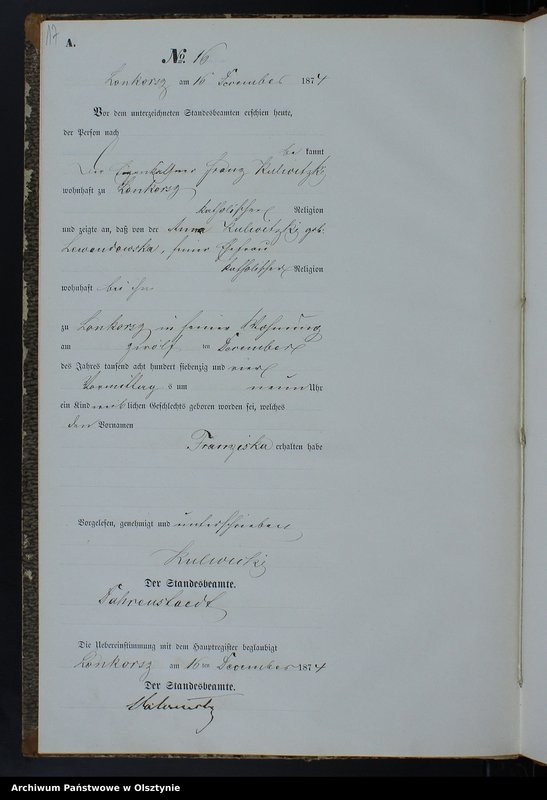 17
A.
No. 16
Lonkorsz am 16 November 1874
Vor dem unterzeichneten Standesbeamten erschien heute,
der Person nach
be kannt
Der Eigenkäthner Franz Kulwitzki
wohnhaft zu Lonkorsz
katholischer Religion
und zeigte an, daß von der Anna Kulwitzki geb:
Lewandowska, seiner Ehefrau
katholischer Religion
wohnhaft bei ihm
zu Lonkorsz in seiner Wohnung
am zwölf ten November
des Jahres tausend acht hundert siebenzig und vier
Vormittag s um neun Uhr
ein Kind weib lichen Geschlechts geboren worden sei, welches
den Vornamen
Franziska erhalten habe
Vorgelesen, genehmigt und unterschrieben
Der Standesbeamte.
Die Uebereinstimmung mit dem Hauptregister beglaubigt
Lonkorsz am 16 ten 1874
Der Standesbeamte.
Archiwum Państwowe w Olsztynie